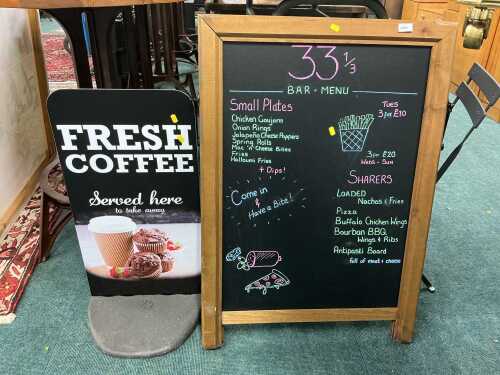 FRESH
COFFEE
Served here
to take away
33 1/3
BAR - MENU
Small Plates
Chicken Goujons
Onion Rings
Jalapeño Cheese Poppers
Spring Rolls
Mac 'n' Cheese Bites
Fries
Halloumi Fries
+ Dips!
Come in
&
Have a Bite!
TUES
3 for £10
3 for £20
Weds - Sun
SHARERS
LOADED
Nachos & Fries
Pizza
Buffalo Chicken Wings
Bourbon BBQ
Wings & Ribs
Antipasti Board
full of meat & cheese